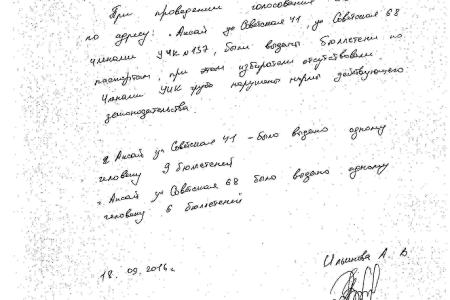 При проведении голосования в
по адресу: г. Аксай ул Советская 41, ул Советская 68
членами УИК №137, были выданы бюллетени по
паспортам, при этом избиратели отсутствовали.
Членами УИК грубо нарушены нормы действующего
законодательства.
г Аксай ул Советская 41 - было выдано одному
человеку 9 бюллетеней
г. Аксай ул Советская 68 было выдано одному
человеку 6 бюллетеней
18.09.2016г.
Ильинова А. В